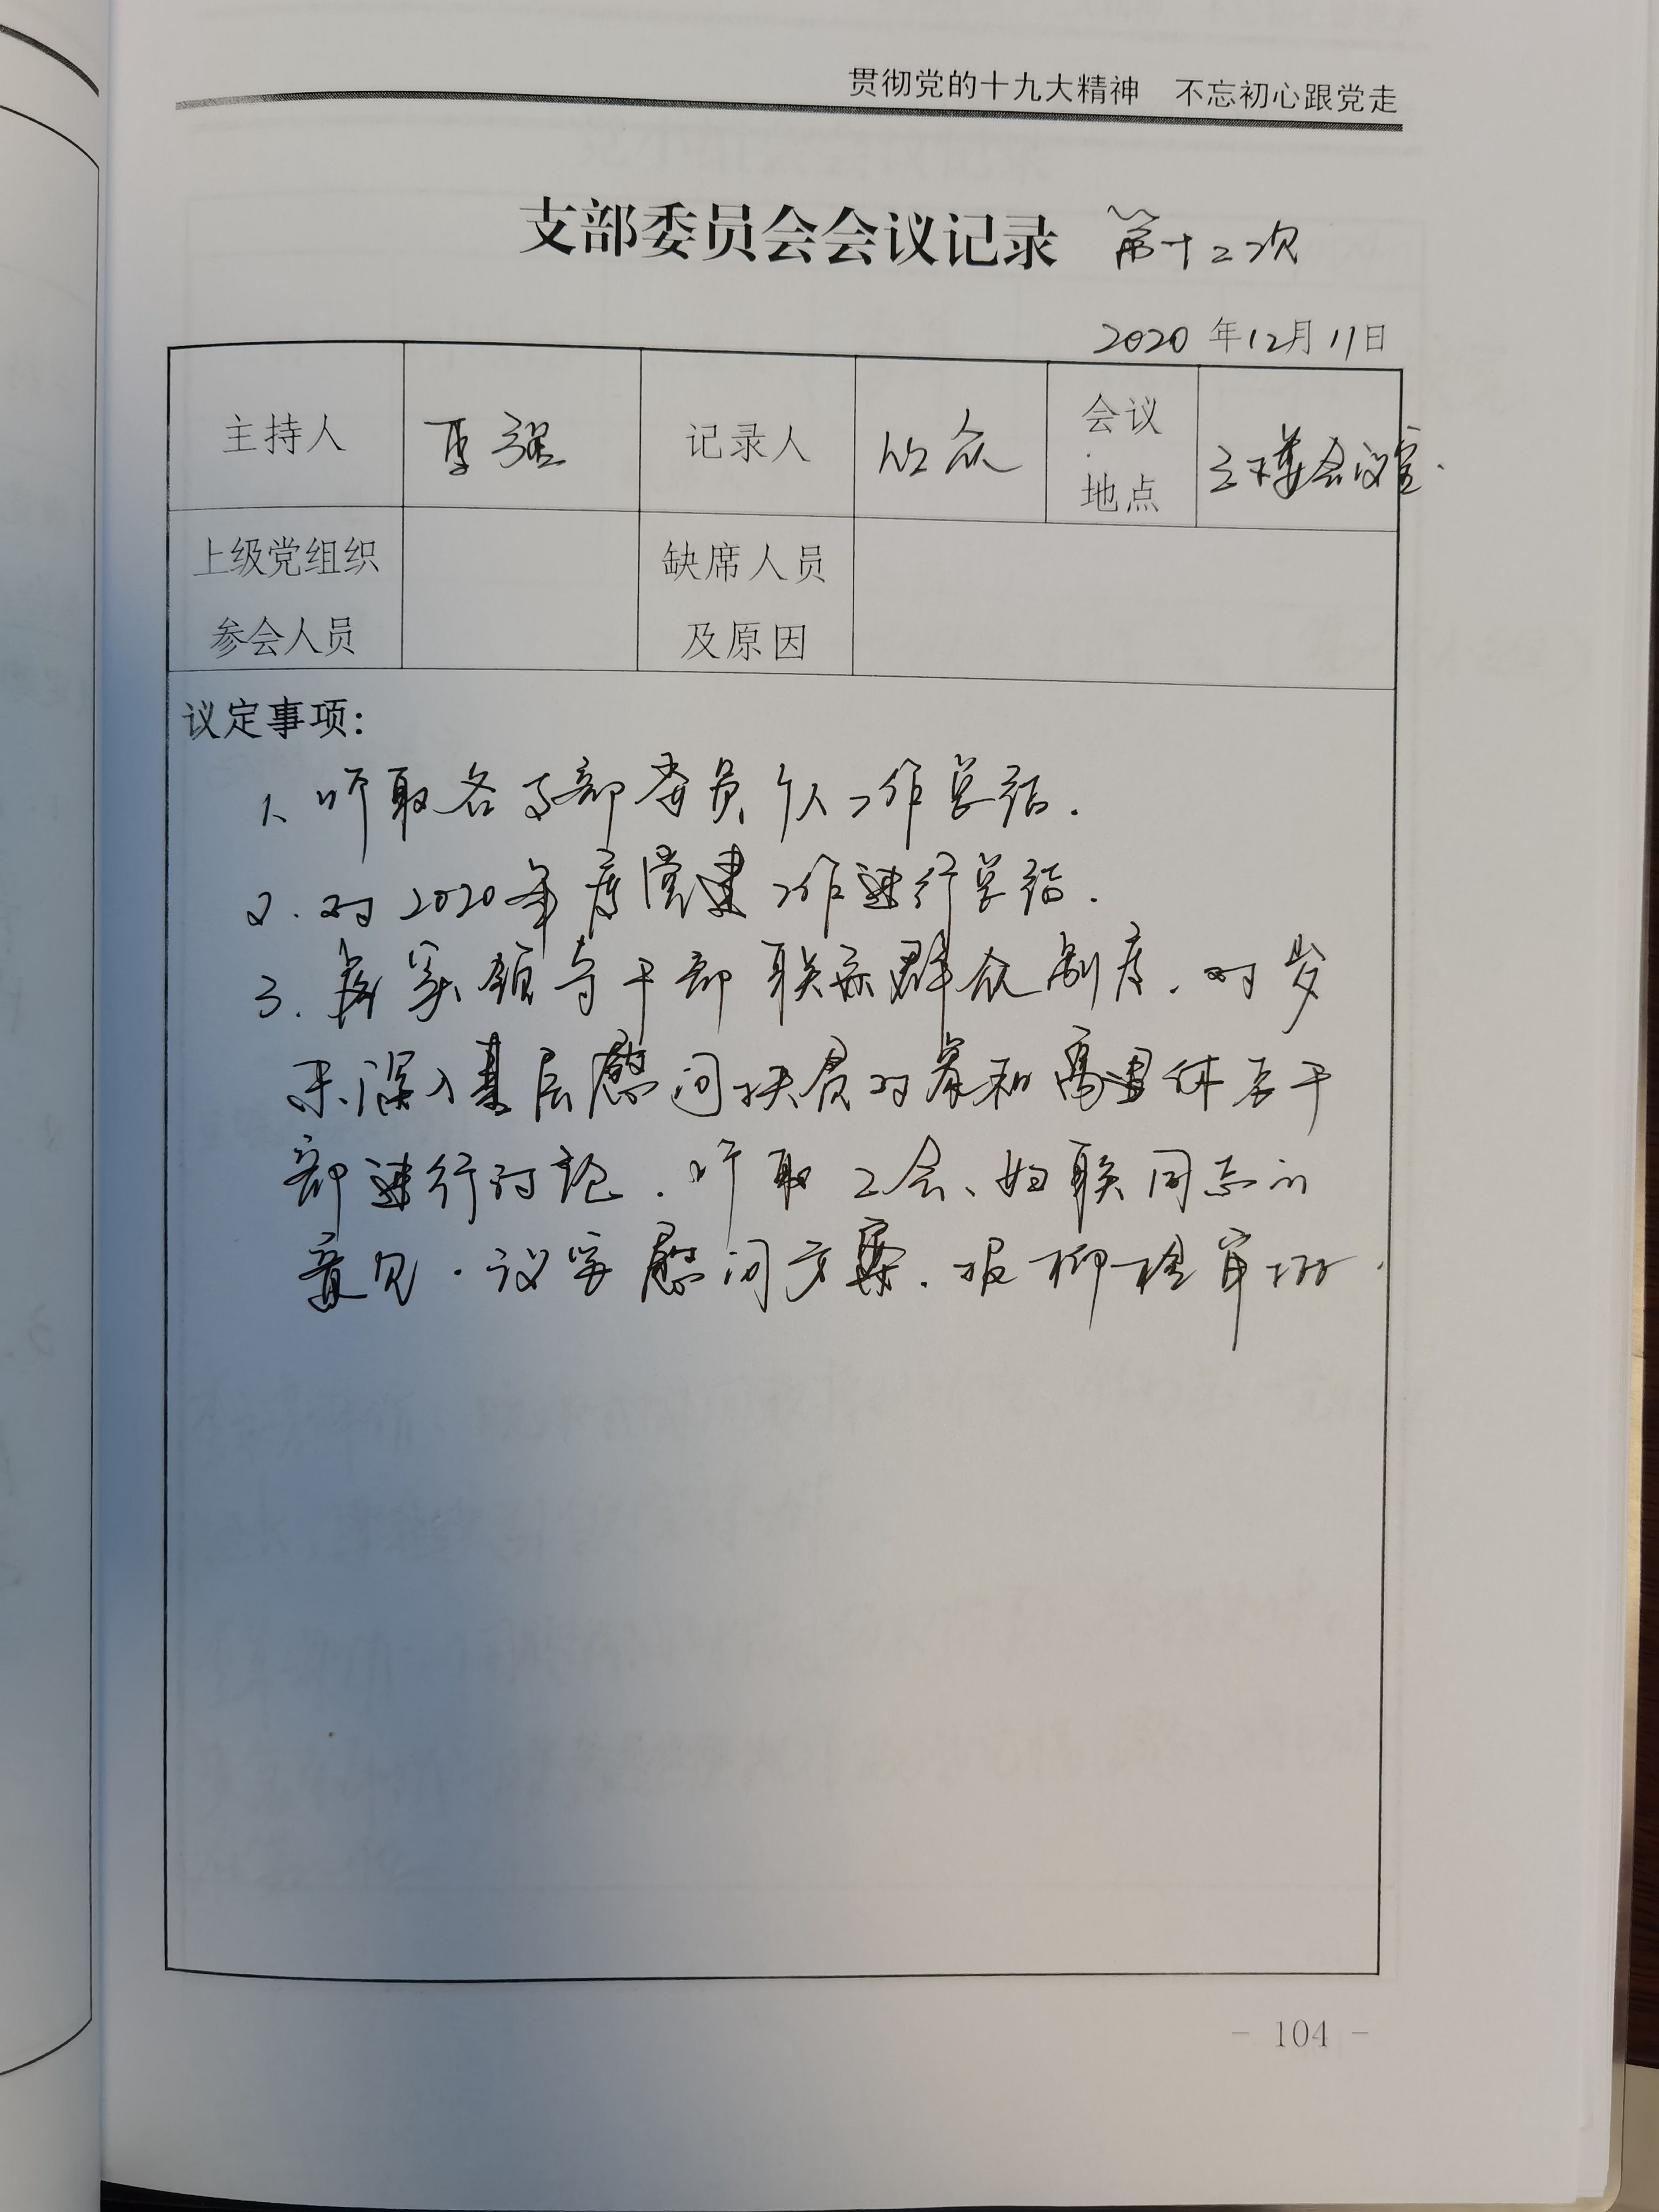 贯彻党的十九大精神　不忘初心跟党走
支部委员会会议记录 第十二次
2020年12月11日
主持人 强 记录人 众 会议地点 三楼会议室.
上级党组织参会人员 缺席人员及原因
议定事项：
1、听取各支部委员个人工作总结.
2.对2020年度党建工作进行总结.
3.落实领导干部联系群众制度.对岁
末深入基层慰问扶贫对象和离退休老干
部进行讨论.听取工会、妇联同志的
意见.议定慰问方案.报审批.
- 104 -